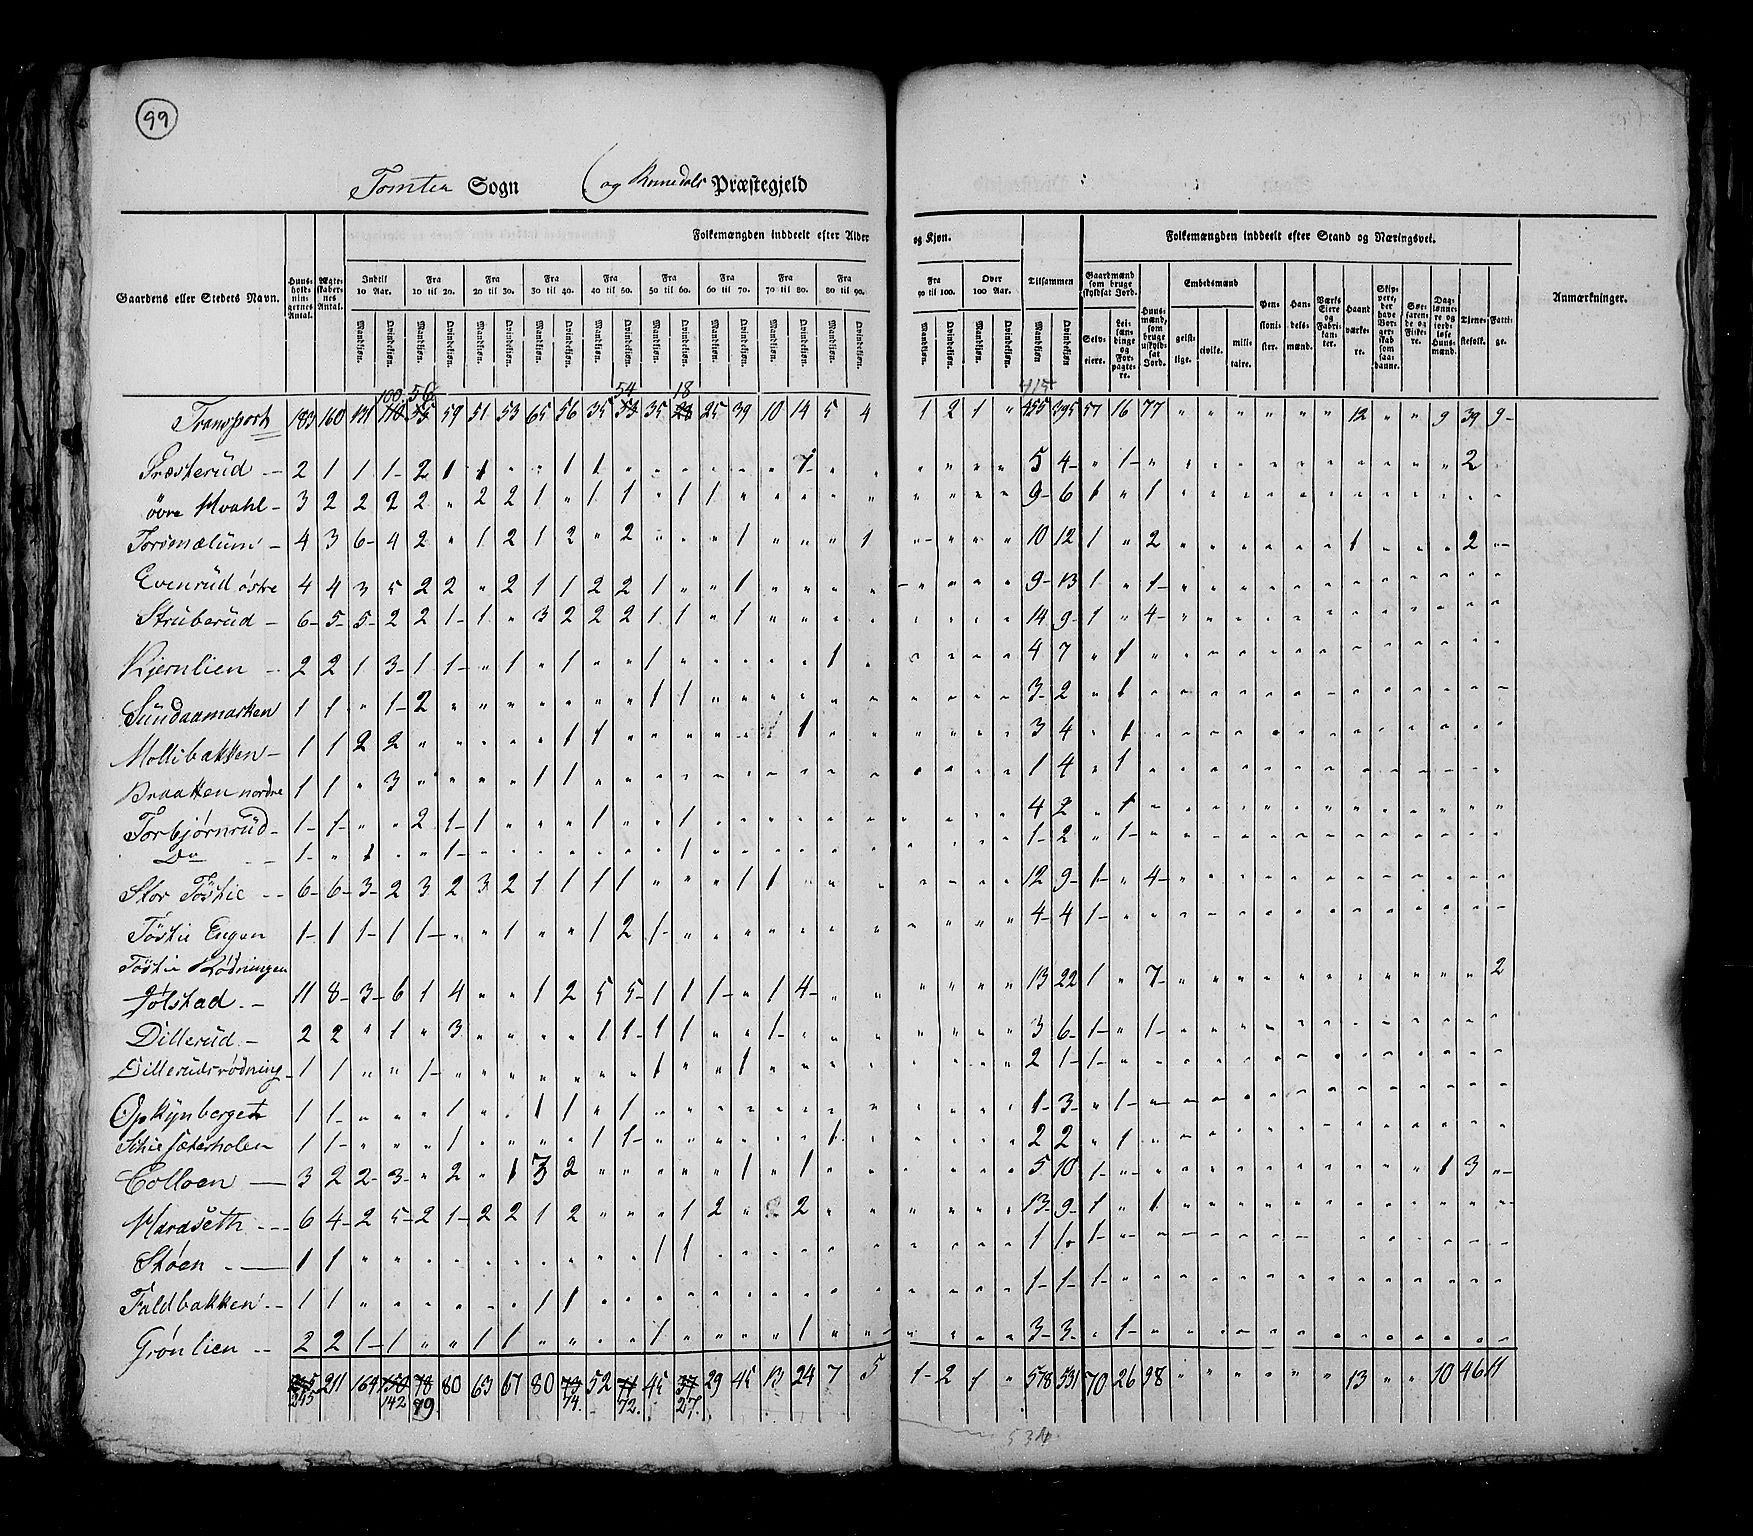 99
Tomter Sogn ( og Præstegjeld
Gaardens eller Stedets Navn. Huusholdningernes Antal. Ægteskabernes Antal. Folkemængden inddeelt efter Alder og Kjøn. Tilsammen Folkemængden inddeelt efter Stand og Næringsvei. Anmærkninger.
Indtil 10 Aar. Fra 10 til 20. Fra 20 til 30. Fra 30 til 40. Fra 40 til 50. Fra 50 til 60. Fra 60 til 70. Fra 70 til 80. Fra 80 til 90. Fra 90 til 100. Over 100 Aar.
Mandkjøn. Qvindekjøn. Mandkjøn. Qvindekjøn. Mandkjøn. Qvindekjøn. Mandkjøn. Qvindekjøn. Mandkjøn. Qvindekjøn. Mandkjøn. Qvindekjøn. Mandkjøn. Qvindekjøn. Mandkjøn. Qvindekjøn. Mandkjøn. Qvindekjøn. Mandkjøn. Qvindekjøn. Mandkjøn. Qvindekjøn. Mandkjøn. Qvindekjøn.
Gaardmænd som bruge skyldsat Jord. Selveiere. Leilændinge og Forpagtere. Huusmænd, som bruge uskyldsat Jord. Embedsmænd geistlige. civile. militaire. Pensionister. Handelsmænd. Værks Eiere og Fabrikanter. Haandværkere. Skippere, der have Borgerskab som saadanne. Søefarende og Fiskere. Dagløonnere og jordløse Huusmænd. Tjenestefolk. Fattige.
100 56 54 18 415
Transport 183 160 131 110 55 59 51 53 65 56 35 53 35 28 25 39 10 14 5 4 1 2 1 " 455 395 57 16 77 " " " " " " 12 " " 9 39 9
Træsterud 2 1 1 1 2 1 1 " " 1 1 " " " " " " 1 " " " " " " 5 4 " 1 " " " " " " " " " " " 2
øvre Hvahl 3 2 2 2 2 " 2 2 1 " 1 1 " 1 1 " " " " " " " " " 9 6 1 " 1 " " " " " " " " " " " "
4 3 6 4 2 " 1 2 1 2 " 2 " " " 1 " " " 1 " " " " 10 12 1 " 2 " " " " " " 1 " " " 2 "
Evenrud østre 4 4 3 5 2 2 " 2 1 1 2 2 1 " " 1 " " " " " " " " 9 13 1 " 1 " " " " " " " " " " " "
Struberud 6 5 5 2 2 1 1 " 3 2 2 2 1 1 " 1 " " " " " " " " 14 9 1 " 4 " " " " " " " " " " " "
Kjernlien 2 2 1 3 1 1 " 1 " 1 " " 1 " " " " " 1 " " " " " 4 7 " 1 " " " " " " " " " " " " "
Sundaamarken 1 1 " 1 2 " " " " " " " 1 1 " " " " " " " " " " 3 2 " 1 " " " " " " " " " " " " "
Mollibakken 1 1 2 2 " " " " " 1 1 " " " " " " 1 " " " " " " 3 4 " 1 " " " " " " " " " " " " "
Braatten nordre 1 1 " 3 " " " " 1 1 " " " " " " " " " " " " " " 1 4 " 1 " " " " " " " " " " " " "
Torbjørnrud 1 1 " " 2 1 1 " " " 1 " " 1 " " " " " " " " " " 4 2 " 1 " " " " " " " " " " " " "
Do 1 " 1 " " 1 " " " " " " " 1 " " " " " " " " " " 1 2 " 1 " " " " " " " " " " " " "
Stor Tøstie 6 6 3 2 3 2 3 2 1 1 1 1 " " " 1 1 " " " " " " " 12 9 1 " 4 " " " " " " " " " " " "
Tøstie Engen 1 1 1 1 1 " " 1 " " 1 2 1 " " " " " " " " " " " 4 4 1 " " " " " " " " " " " " " "
Tøstie Rødningen
Jølstad 11 8 3 6 1 4 " " 1 2 5 5 1 1 1 " 1 4 " " " " " " 13 22 1 " 7 " " " " " " " " " " " 2
Dillerud 2 2 " 1 " 3 " " " " 1 1 1 1 " " 1 " " " " " " " 3 6 1 " 1 " " " " " " " " " " " "
Dillerudsrødning 1 1 " " 1 " " " " " " " 1 " " 1 " " " " " " " " 2 1 1 " " " " " " " " " " " " " "
Opkynberget 1 1 " " " 1 " " 1 1 " 1 " " " " " " " " " " " " 1 3 " 1 " " " " " " " " " " " " "
1 1 " " " 1 " " " " 1 1 " " " " " " 1 " " " " " 2 2 " 1 " " " " " " " " " " " " "
Colloen 3 2 2 3 " 2 " 1 3 2 " " " " " 1 " 1 " " " " " " 5 10 1 " " " " " " " " " " " 1 3 "
Haraseth 6 4 2 5 2 1 2 2 1 2 " " " 1 2 " 2 2 " " " " " " 13 9 1 " 1 " " " " " " " " " " " "
Skøen 1 1 " " " " " " " " " " 1 1 " " " " " " " " " " 1 1 1 " " " " " " " " " " " " " "
Faldbakken 1 1 " " " " " " 1 1 " " " " " " " " " " " " " " 1 1 1 " " " " " " " " " " " " " "
Grønlien 2 2 1 1 " " 1 1 " " " " 1 " " " " 1 " " " " " " 3 3 " 1 " " " " " " " " " " " " "
211 164 150 78 80 63 67 80 73 52 71 45 37 29 45 13 24 7 5 1 2 1 " 578 531 70 26 98 " " " " " " 13 " " 10 46 11
245 142 79 74. 72. 27.
534